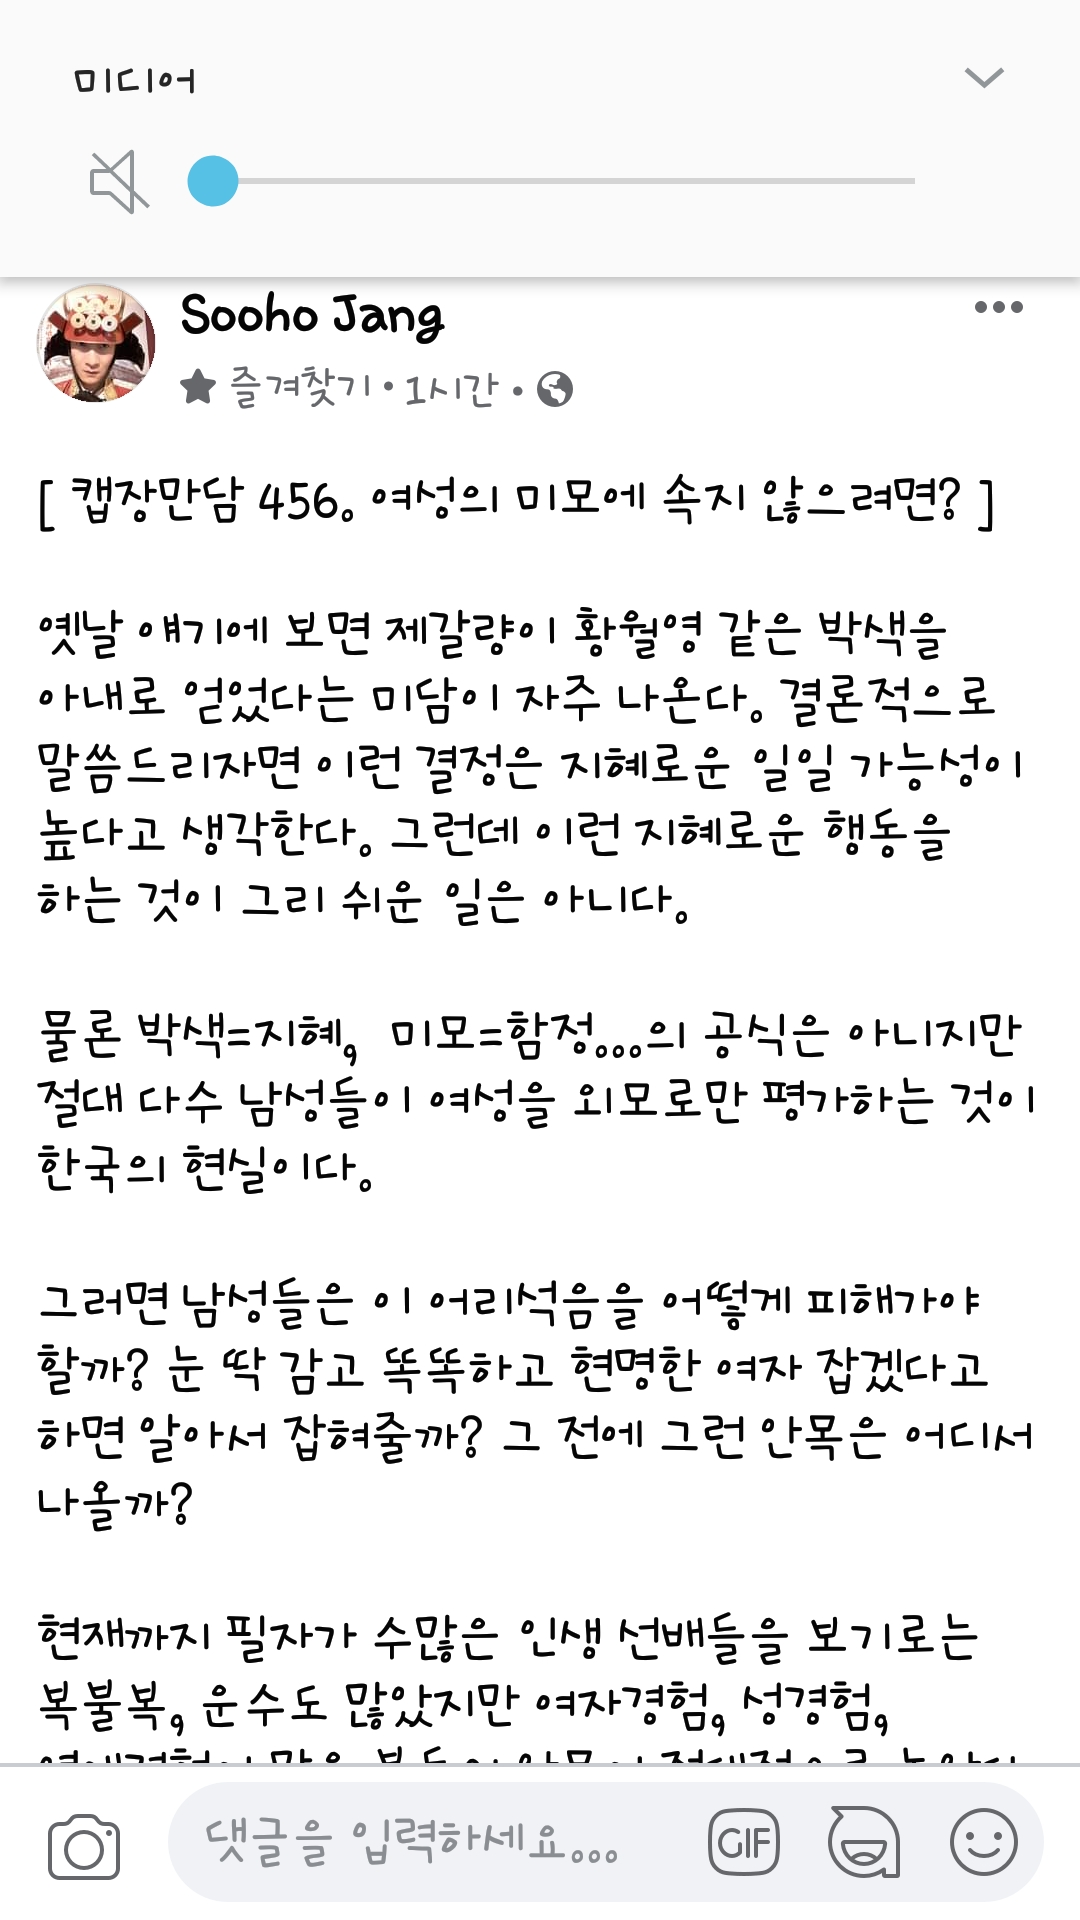 미디어
Sooho Jang
즐겨찾기 • 1시간 •
[ 캡장만담 456. 여성의 미모에 속지 않으려면? ]
옛날 얘기에 보면 제갈량이 황월영 같은 박색을
아내로 얻었다는 미담이 자주 나온다. 결론적으로
말씀드리자면 이런 결정은 지혜로운 일일 가능성이
높다고 생각한다. 그런데 이런 지혜로운 행동을
하는 것이 그리 쉬운 일은 아니다.
물론 박색=지혜, 미모=함정...의 공식은 아니지만
절대 다수 남성들이 여성을 외모로만 평가하는 것이
한국의 현실이다.
그러면 남성들은 이 어리석음을 어떻게 피해가야
할까? 눈 딱 감고 똑똑하고 현명한 여자 잡겠다고
하면 알아서 잡혀줄까? 그 전에 그런 안목은 어디서
나올까?
현재까지 필자가 수많은 인생 선배들을 보기로는
복불복, 운수도 많았지만 여자경험, 성경험,
댓글을 입력하세요...
GIF